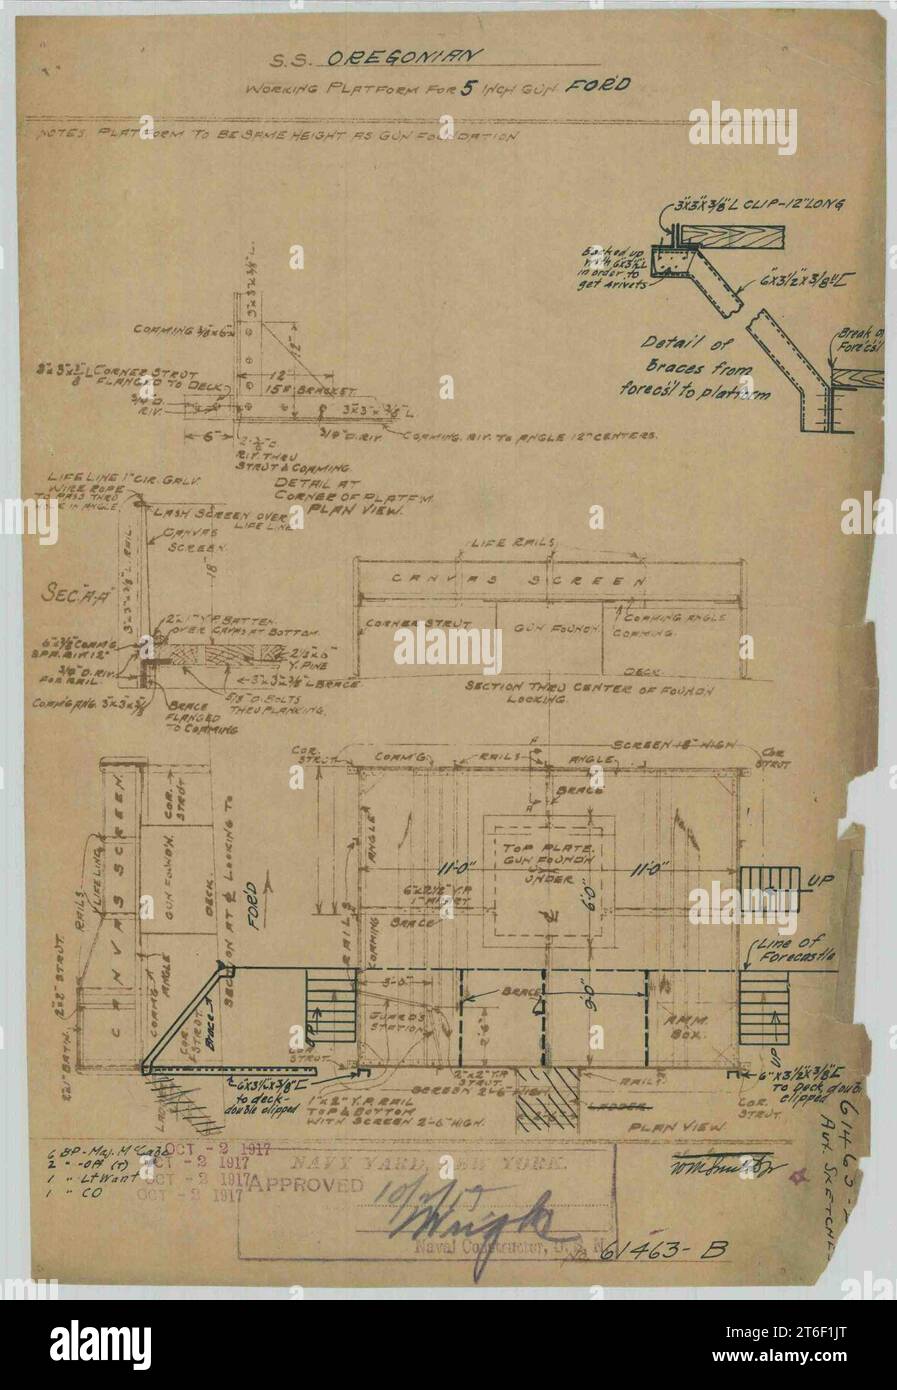 S.S. OREGONIAN
WORKING PLATFORM FOR 5 INCH GUN FOR'D
NOTES PLATFORM TO BE SAME HEIGHT AS GUN FOUNDATION
3"x3"x3/8" L CLIP-12" LONG
Backed up
with 6x3½"L
in order to
get 4 rivets
6"x3½"x3/8" [
Detail of
Braces from
forec'sl to platform
Break of
Forec'sl
3"x3"x3/8" L.
COAMING 3/8"x6"
12"
12"
15# BRACKET
3"x3"x3/8" L CORNER STRUT
FLANGED TO DECK
3/4" D.
RIV.
6"
3"x3"x3/8" L
3/4" D. RIV.
COAMING RIV. TO ANGLE 12" CENTERS.
RIV. THRU
STRUT & COAMING.
DETAIL AT
CORNER OF PLATF'M.
PLAN VIEW.
LIFE LINE 1" CIR. GALV.
WIRE ROPE
TO PASS THRU
IN ANGLE.
LASH SCREEN OVER
LIFE LINE
CANVAS
SCREEN.
18"
3"x3"x3/8" L RAIL
SEC "A-A"
2"x1" Y.P. BATTEN
OVER CANVAS AT BOTTOM.
Y. PINE
3/4" D. RIV.
FOR RAIL.
3"x3"x3/8" L BRACE
COAM'G ANG. 3"x3"x3/8"
BRACE
FLANGED
TO COAMING
5/8" D. BOLTS
THRU PLANKING.
LIFE RAILS
CANVAS SCREEN
CORNER STRUT
GUN FOUND'N.
COAMING ANGLE
COAMING.
DECK.
SECTION THRU CENTER OF FOUND'N
LOOKING.
COR.
STRUT.
COAM'G.
RAILS
A
ANGLE
SCREEN 18" HIGH
COR
STRUT.
BRACE
A
ANGLE
TOP PLATE.
GUN FOUND'N
UNDER
11'-0"
11'-0"
6'0"
BRACE
RAILS
COAMING
UP
Line of
Forecastle
CANVAS SCREEN.
COR.
STRUT
GUN FOUND'N.
DECK.
LIFE LINE
RAILS
SECTION AT ℄ LOOKING TO
FOR'D
2"x2" STRUT.
COAM'G
ANGLE
COR.
STRUT
Brace
UP
3'-0"
GUARDS
STATION
BRACE
9'0"
2'-6"
AMM.
BOX.
UP
COR
STRUT.
6"x3½"x3/8" [
to deck-
double clipped
1"x2" Y.P. RAIL
TOP & BOTTOM
WITH SCREEN 2'-6" HIGH.
2"x2" Y.P.
STRUT.
SCREEN 2'-6" HIGH
RAILS
LADDER
6"x3½"x3/8" [
to deck double
clipped
COR.
STRUT.
PLAN VIEW.
OCT - 2 1917
OCT - 2 1917
OCT - 2 1917
OCT - 2 1917
2 " -Off (T)
1 " Lt Want
1 " CO
NAVY YARD, NEW YORK.
APPROVED
Naval Constructor, U. S. N.
No. 61463-B
alamy
Image ID: 2T6F1JT
www.alamy.com